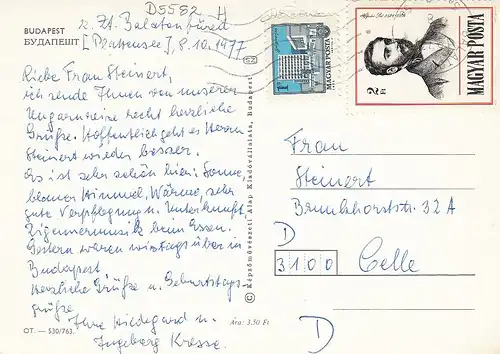 D5582 H
BUDAPEST
БУДАПЕШТ
z. Zt. Balatonfüred
[Plattensee], 8.10.1977
Liebe Frau Steinert,
ich sende Ihnen von unserer
Ungarnreise recht herzliche
Grüße. Hoffentlich geht es Herrn
Steinert wieder besser.
Es ist sehr schön hier: Sonne
blauer Himmel, Wärme, sehr
gute Verpflegung u. Unterkunft
Zigeunermusik beim Essen.
Gestern waren wir tags über in
Budapest.
Herzliche Grüße u. Geburtstags-
grüße
Ihre Hildegard u.
Ingeborg Kresse.
OT. — 530/763.
Ára: 3.50 Ft
© Képzőművészeti Alap Kiadóvállalata, Budapest
1
MAGYAR POSTA
2 Ft
MAGYAR POSTA
Frau
Steinert
Brunkhorststr. 32A
D
3100 Celle
D